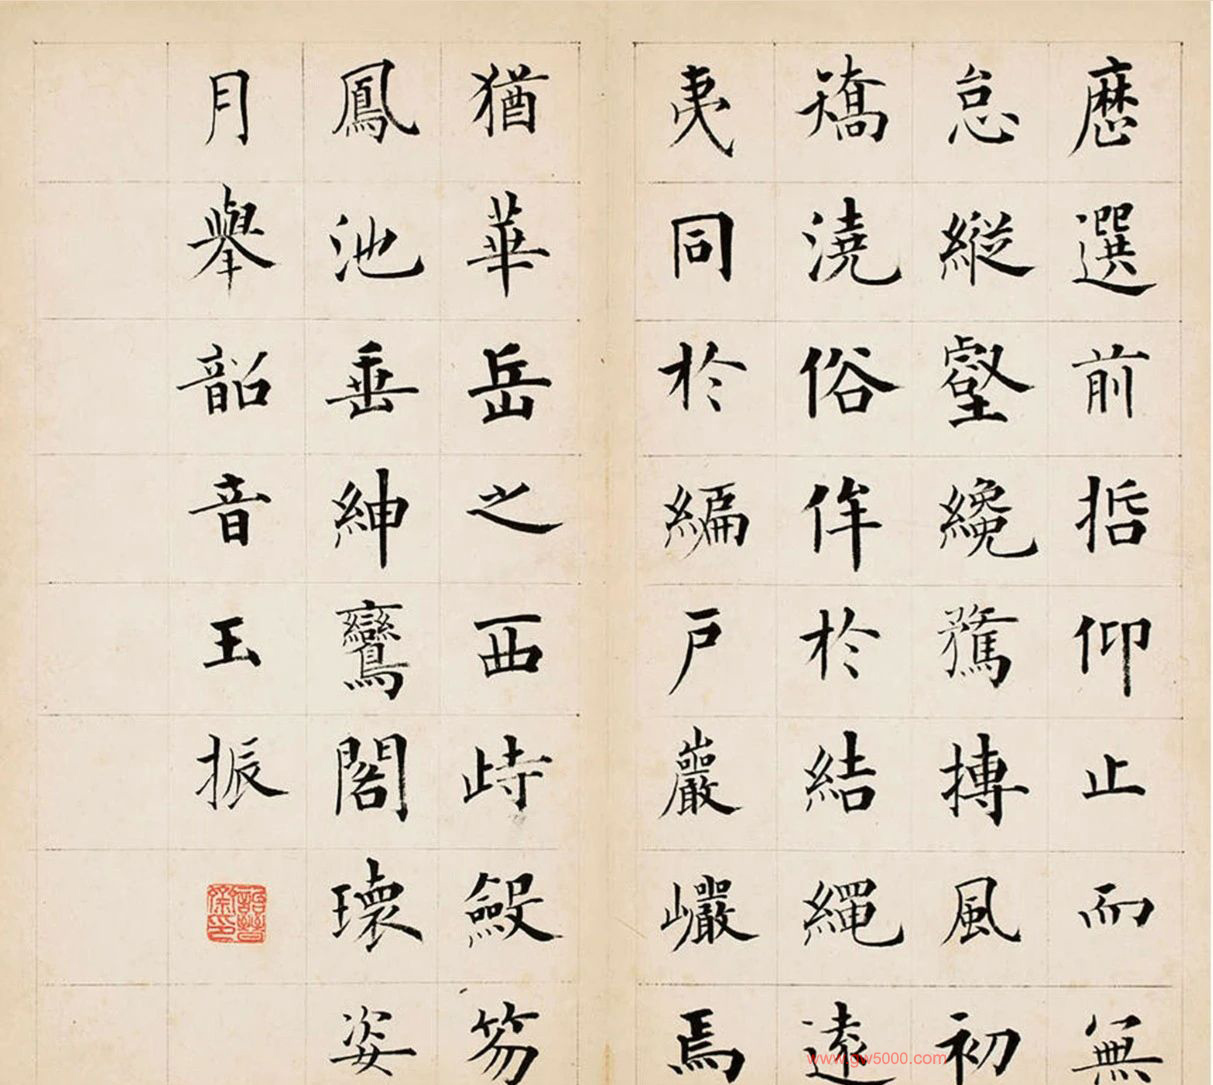 歷選前哲仰止而無
怠縱壑纔騖摶風初
矯澆俗侔於結繩遠
夷同於編戶巖巖焉
猶華岳之西峙斂笏
鳳池垂紳鸞閣瓌姿
月舉韶音玉振
詒晉齋印
www.gw5000.com